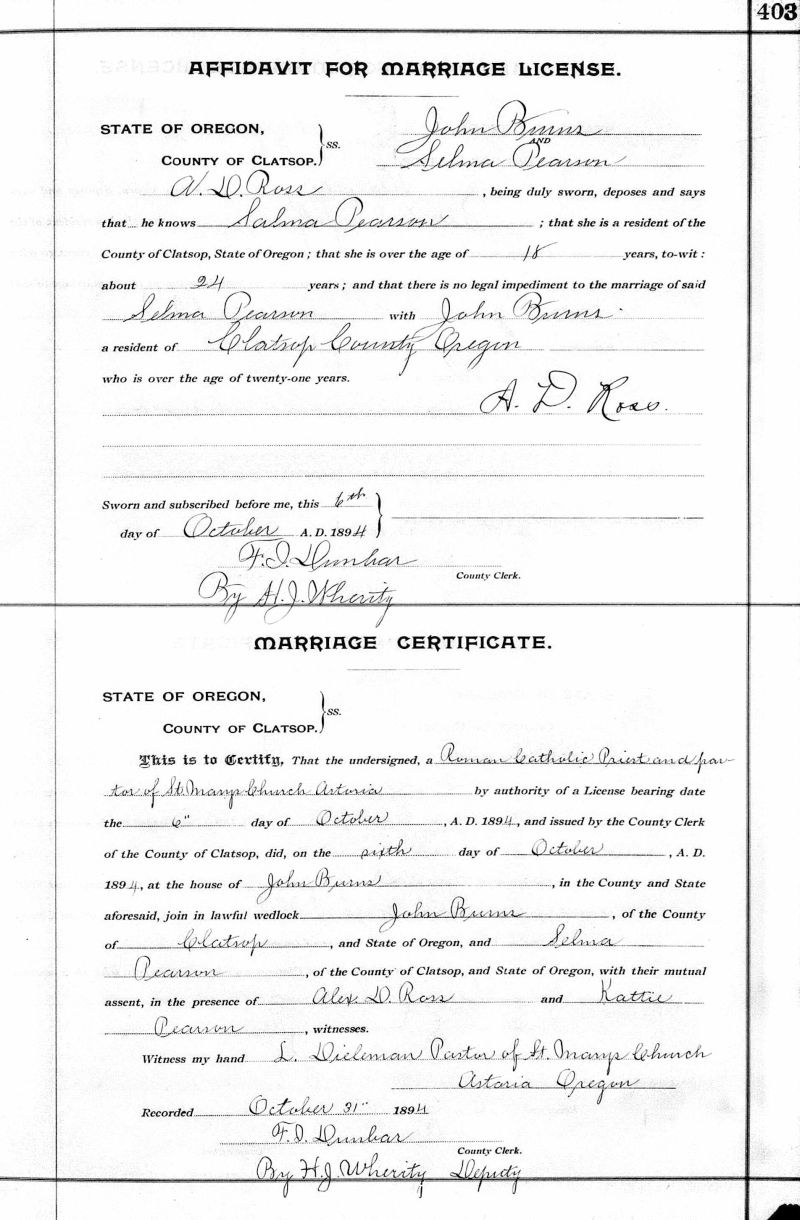 403
AFFIDAVIT FOR MARRIAGE LICENSE.
STATE OF OREGON, } ss. John Burns
AND
COUNTY OF CLATSOP. Selma Pearson
A. D. Ross, being duly sworn, deposes and says
that he knows Salma Pearson; that she is a resident of the
County of Clatsop, State of Oregon; that she is over the age of 18 years, to-wit:
about 24 years; and that there is no legal impediment to the marriage of said
Selma Pearson with John Burns.
a resident of Clatsop County Oregon
who is over the age of twenty-one years.
A. D. Ross.
Sworn and subscribed before me, this 6th
day of October A. D. 1894
F. I. Dunbar
County Clerk.
By H. J. Wherity
MARRIAGE CERTIFICATE.
STATE OF OREGON, } ss.
COUNTY OF CLATSOP.
This is to Certify, That the undersigned, a Roman Catholic Priest and pas-
tor of St. Marys Church Astoria by authority of a License bearing date
the 6" day of October, A. D. 1894, and issued by the County Clerk
of the County of Clatsop, did, on the sixth day of October, A. D.
1894, at the house of John Burns, in the County and State
aforesaid, join in lawful wedlock John Burns, of the County
of Clatsop, and State of Oregon, and Selma
Pearson, of the County of Clatsop, and State of Oregon, with their mutual
assent, in the presence of Alex. D. Ross and Kattie
Pearson, witnesses.
Witness my hand L. Dieleman Pastor of St. Marys Church
Astoria Oregon
Recorded October 31" 1894
F. I. Dunbar
County Clerk.
By H. J. Wherity Deputy